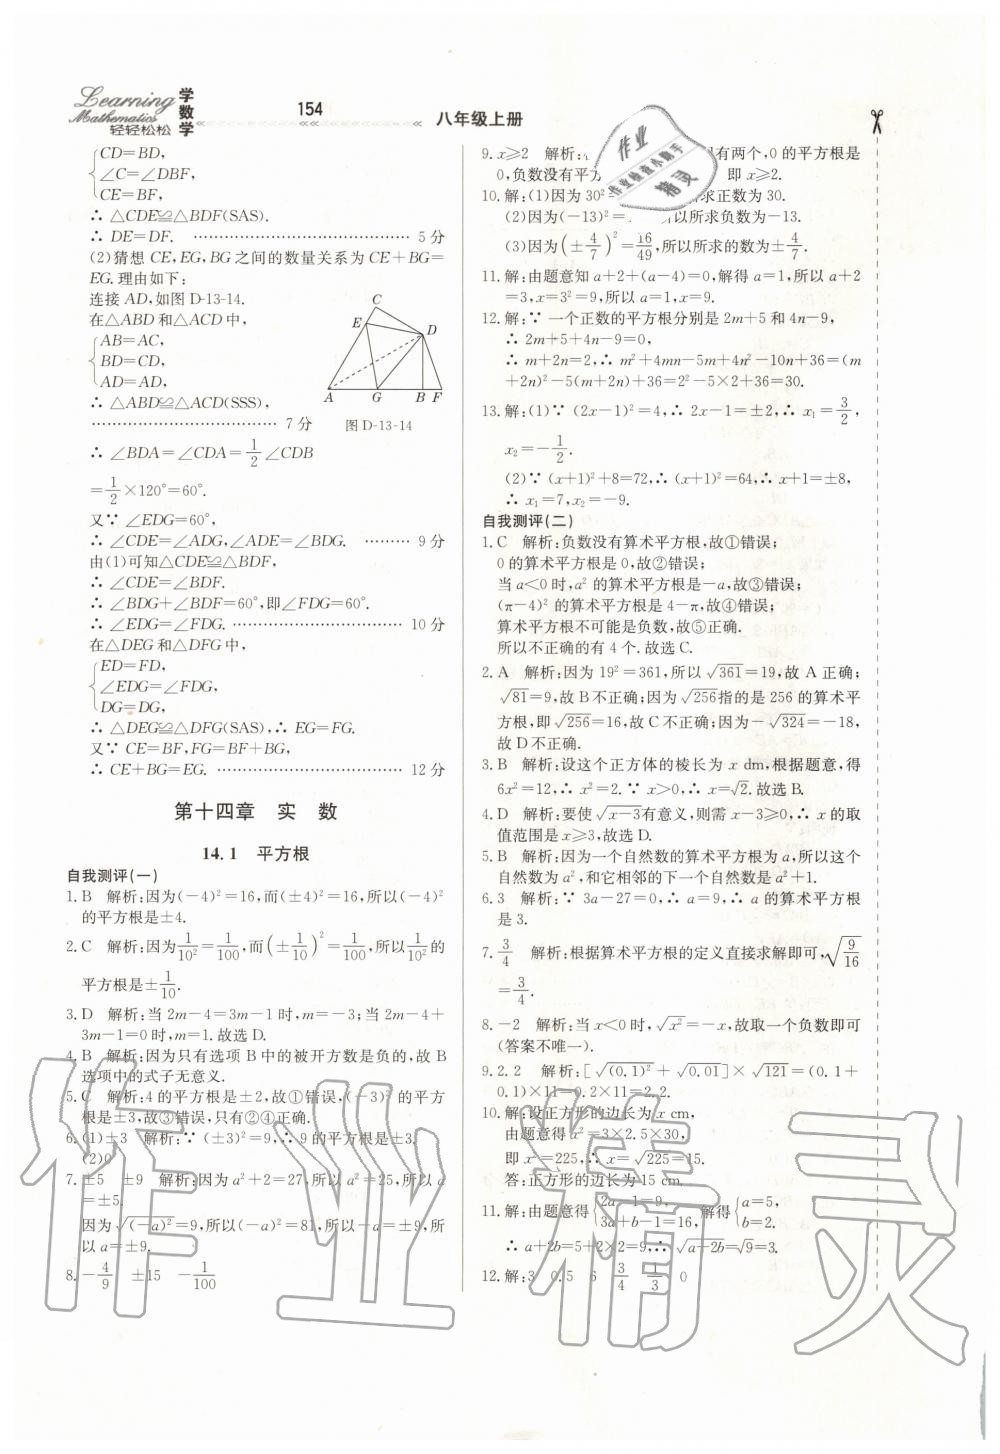 Learning
Mathematics
轻轻松松
学数学
154
八年级上册
CD=BD,
∠C=∠DBF,
CE=BF,
∴ △CDE≌△BDF(SAS).
∴ DE=DF. …………………………………… 5分
(2)猜想 CE,EG,BG 之间的数量关系为 CE+BG=
EG.理由如下:
连接 AD,如图 D-13-14.
在△ABD 和△ACD 中,
AB=AC,
BD=CD,
AD=AD,
∴ △ABD≌△ACD(SSS),
……………………………… 7分
C
E
D
A
G
B
F
图 D-13-14
∴ ∠BDA=∠CDA=1/2∠CDB
=1/2×120°=60°.
又∵ ∠EDG=60°,
∴ ∠CDE=∠ADG,∠ADE=∠BDG. ……… 9分
由(1)可知△CDE≌△BDF,
∴ ∠CDE=∠BDF.
∴ ∠BDG+∠BDF=60°,即∠FDG=60°.
∴ ∠EDG=∠FDG. ………………………… 10分
在△DEG 和△DFG 中,
ED=FD,
∠EDG=∠FDG,
DG=DG,
∴ △DEG≌△DFG(SAS),∴ EG=FG.
又∵ CE=BF,FG=BF+BG,
∴ CE+BG=EG. …………………………… 12分
第十四章 实 数
14.1 平方根
自我测评(一)
1.B 解析:因为(−4)²=16,而(±4)²=16,所以(−4)²
的平方根是±4.
2.C 解析:因为1/10²=1/100,而(±1/10)²=1/100,所以1/10²的
平方根是±1/10.
3.D 解析:当 2m−4=3m−1 时,m=−3;当 2m−4+
3m−1=0 时,m=1.故选 D.
4.B 解析:因为只有选项 B 中的被开方数是负的,故 B
选项中的式子无意义.
5.C 解析:4 的平方根是±2,故①错误,(−3)² 的平方
根是±3,故③错误,只有②④正确.
6.(1)±3 解析:∵ (±3)²=9,∴ 9 的平方根是±3.
(2)0
7.±5 ±9 解析:因为 a²+2=27,所以 a²=25,所以 a
=±5.
因为√(−a)²=9,所以(−a)²=81,所以−a=±9,所
以 a=±9.
8.−4/9 ±15 −1/100
9.x≥2 解析:
有两个,0 的平方根是
0,负数没有平方
即 x≥2.
10.解:(1)因为 30²=
求正数为 30.
(2)因为(−13)²=1
所以所求负数为−13.
(3)因为(±4/7)²=16/49,所以所求的数为±4/7.
11.解:由题意知 a+2+(a−4)=0,解得 a=1,所以 a+2
=3,x=3²=9,所以 a=1,x=9.
12.解:∵ 一个正数的平方根分别是 2m+5 和 4n−9,
∴ 2m+5+4n−9=0,
∴ m+2n=2,∴ m²+4mn−5m+4n²−10n+36=(m
+2n)²−5(m+2n)+36=2²−5×2+36=30.
13.解:(1)∵ (2x−1)²=4,∴ 2x−1=±2,∴ x₁=3/2,
x₂=−1/2.
(2)∵ (x+1)²+8=72,∴ (x+1)²=64,∴ x+1=±8,
∴ x₁=7,x₂=−9.
自我测评(二)
1.C 解析:负数没有算术平方根,故①错误;
0 的算术平方根是 0,故②错误;
当 a<0 时,a² 的算术平方根是−a,故③错误;
(π−4)² 的算术平方根是 4−π,故④错误;
算术平方根不可能是负数,故⑤正确.
所以不正确的有 4 个.故选 C.
2.A 解析:因为 19²=361,所以√361=19,故 A 正确;
√81=9,故 B 不正确;因为√256指的是 256 的算术平
方根,即√256=16,故 C 不正确;因为−√324=−18,
故 D 不正确.
3.B 解析:设这个正方体的棱长为 x dm,根据题意,得
6x²=12,∴ x²=2.∵ x>0,∴ x=√2.故选 B.
4.D 解析:要使√x−3有意义,则需 x−3≥0,∴ x 的取
值范围是 x≥3,故选 D.
5.B 解析:因为一个自然数的算术平方根为 a,所以这个
自然数为 a²,和它相邻的下一个自然数是 a²+1.
6.3 解析:∵ 3a−27=0,∴ a=9,∴ a 的算术平方根
是 3.
7.3/4 解析:根据算术平方根的定义直接求解即可,√9/16
=3/4.
8.−2 解析:当 x<0 时,√x²=−x,故取一个负数即可
(答案不唯一).
9.2.2 解析:[√(0.1)²+√0.01]×√121=(0.1+
0.1)×11=0.2×11=2.2.
10.解:设正方形的边长为 x cm,
由题意得 x²=3×2.5×30,
即 x²=225,∴ x=√225=15.
答:正方形的边长为 15 cm.
11.解:由题意得{2a−1=9, 3a+b−1=16, 解得{a=5, b=2.
∴ a+2b=5+2×2=9,∴ √a+2b=√9=3.
12.解:3 0.5 6 3/4 1/3 0
作业
作业检查小助手
精灵
作业精灵